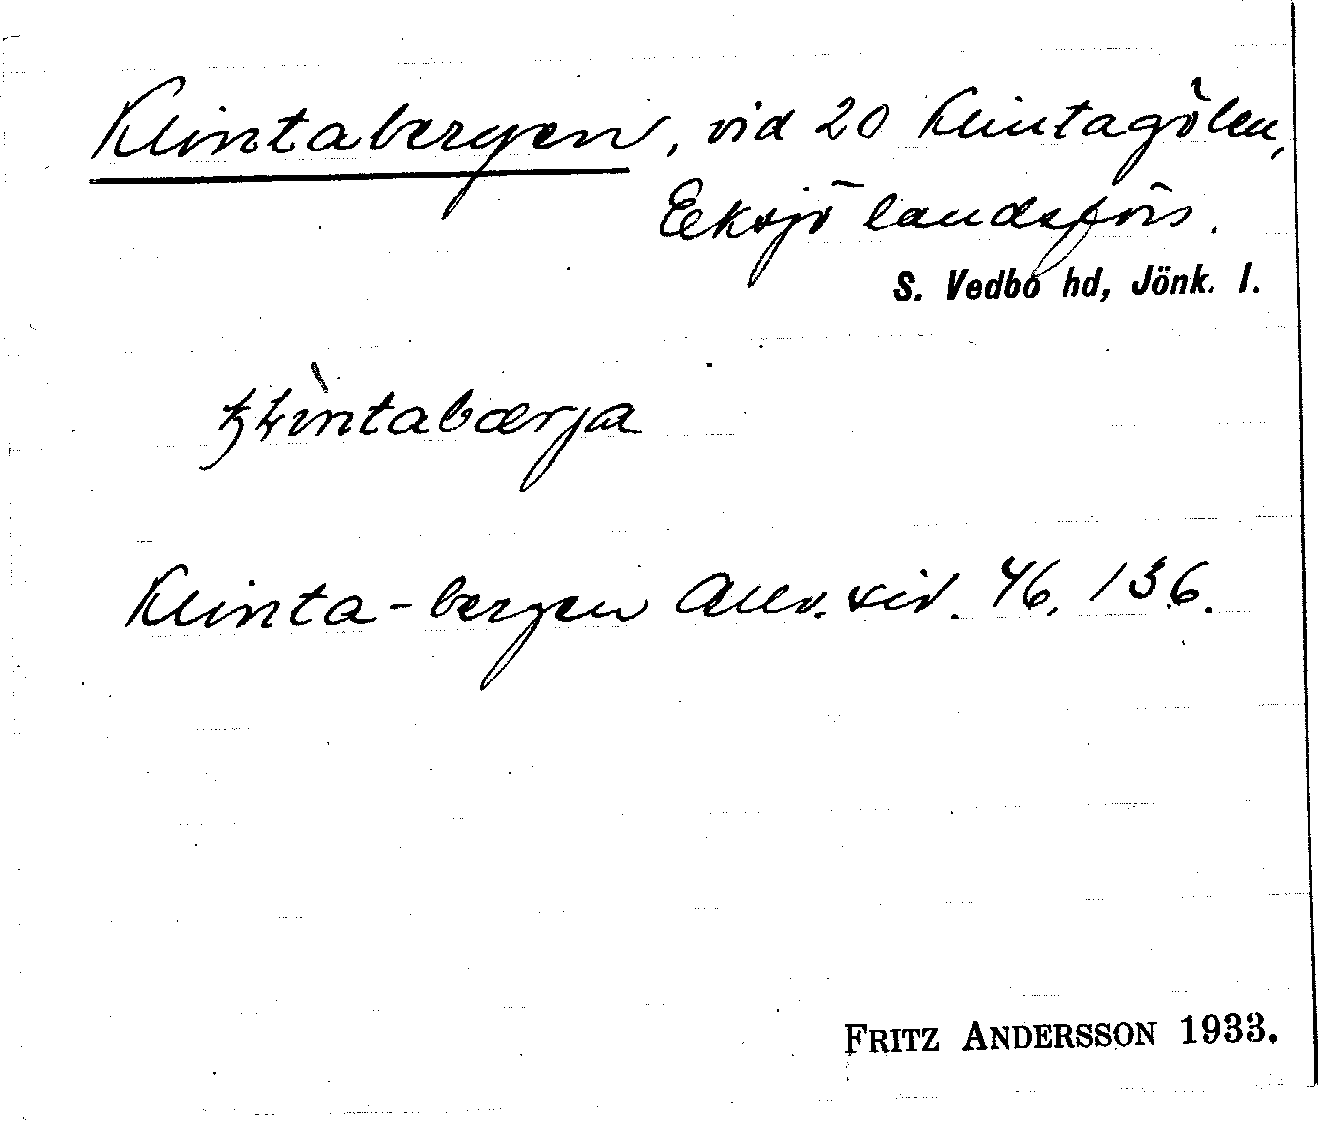 Klintabergen, vid 20 Klintagölen,
Eksjö landsförs.
S. Vedbo hd, Jönk. l.
Klinta-bergen Allv. xiv. 46, 136.
FRITZ ANDERSSON 1933.